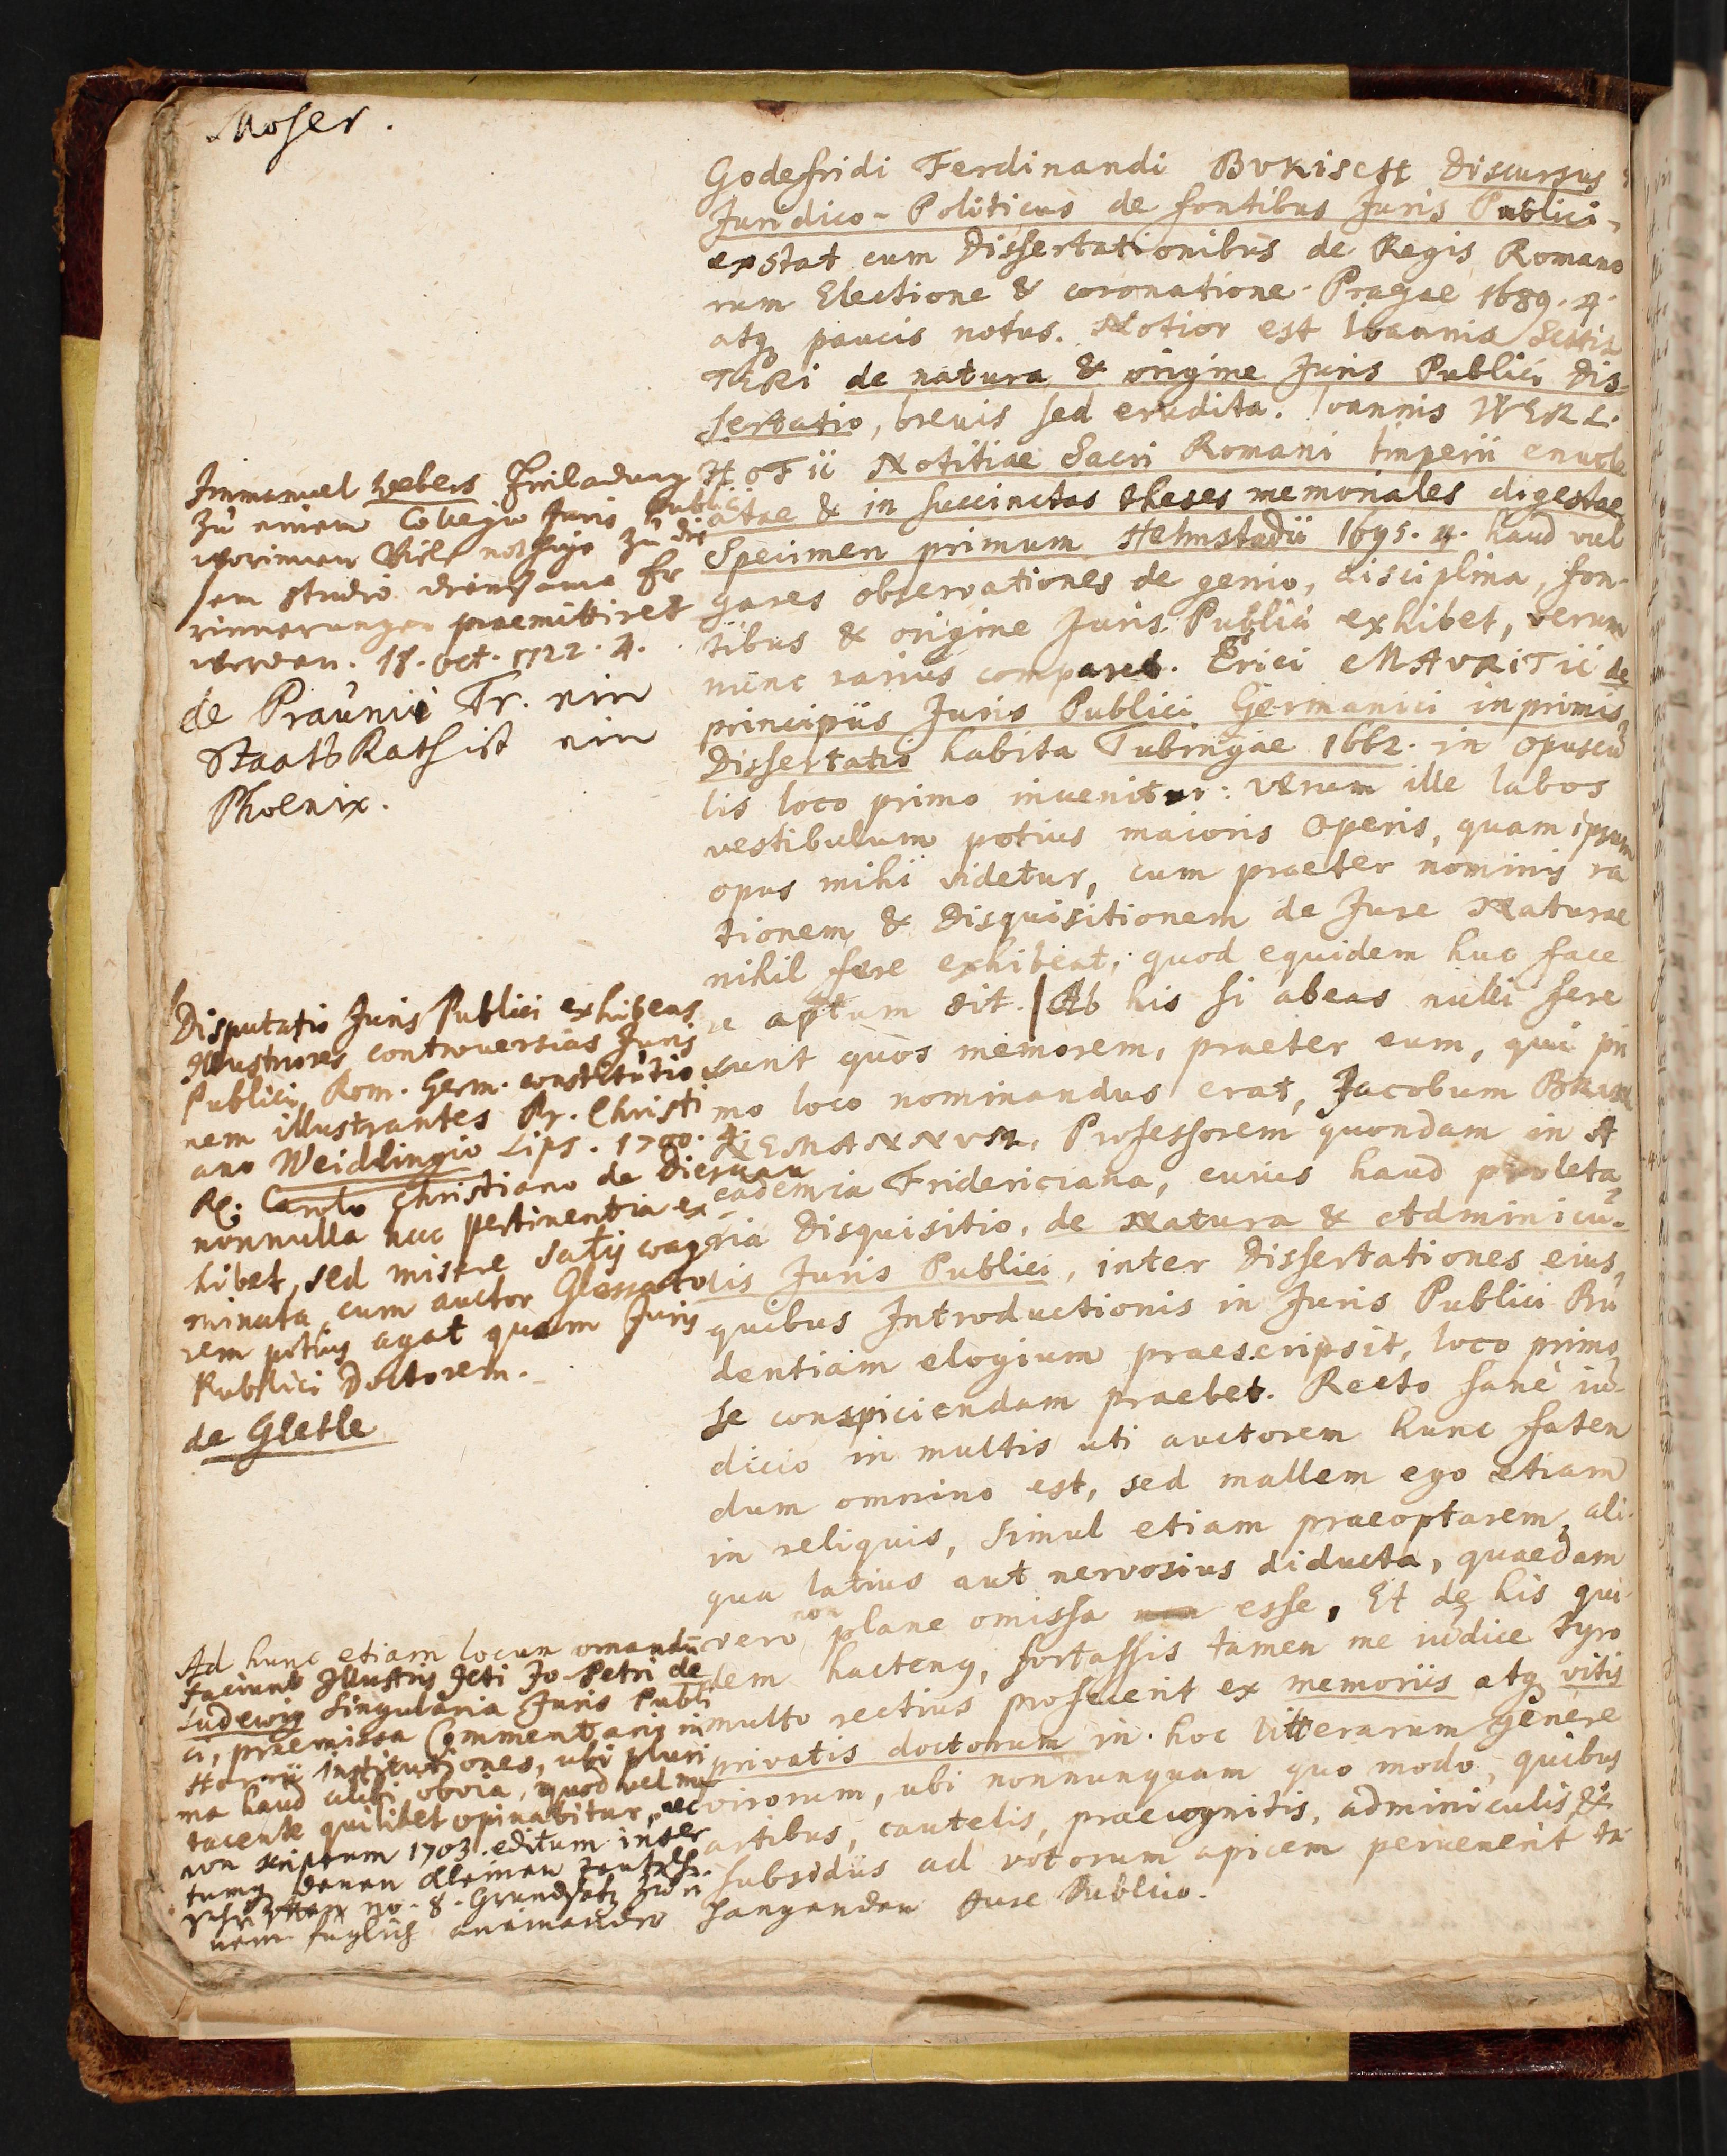 Moser.
Godefridi Ferdinandi BVKISCH Discursus
Juridico-Politicus de fontibus Juris Publici,
exstat cum Dissertationibus de Regis Romano
rum Electione & coronatione. Pragae 1689. 4.
atq paucis notus. Notior est Ioannis
TERI de natura & origine Juris Publici Dis-
sertatio, brevis sed erudita. Ioannis WERL-
HOFII Notitiae Sacri Romani Imperii enucle
atae & in succinctas theses memoriales digestae
Specimen primum Helmstadii 1695. 4. haud vul
gares observationes de genio, disciplina, fon-
tibus & origine Juris Publici exhibet, verum
nunc rarius comparet. Erici MAVRITII de
principiis Juris Publici Germanici inprimis
Dissertatio habita Tubingae 1662. in opuscu
lis loco primo invenitur: verum ille labos
vestibulum potius maioris operis, quam ipsum
opus mihi videtur, cum praeter nominis ra
tionem & Disquisitionem de Jure Naturae
nihil fere exhibeat, quod equidem huc face
re aptum sit. | Ab his si abeas nulli fere
sunt quos memorem, praeter eum, qui pri
mo loco nominandus erat, Jacobum
NEMANNVM, Professorem quondam in A
cademia Fridericiana, cuius haud proleta
ria Disquisitio, de Natura & Adminicu-
lis Juris Publici, inter Dissertationes eius,
quibus Introductionis in Juris Publici Pru
dentiam elogium praescripsit, loco primo
se conspiciendam praebet. Recto sane iu-
dicio in multis uti auctorem hunc faten
dum omnino est, sed mallem ego etiam
in reliquis, simul etiam praeoptarem, ali-
qua latius aut nervosius diducta, quaedam
vero non plane omissa esse. Et de his qui-
dem hactenq, fortassis tamen me iudice Tyro
multo rectius profecerit ex memoriis atq vitis
privatis doctorum in hoc litterarum genere
virorum, ubi nonnunquam quo modo, quibus
artibus, cautelis, praecognitis, adminiculis &
subsidiis ad votorum apicem pervenerit tra
Jmmanuel Webers Einladung
zu einem Collegio Juris Publici
worinnen viele nöthige zu die
sem studio diensame Er
rinnerungen praemittiret
werden. 18. Oct. 1722. 4.
de Praunii Tr. ein
Staats Rath ist ein
Phoenix.
Disputatio Juris Publici exhibens
Illustriores controversias Juris
Publici Rom. Germ. constitutio
nem illustrantes Pr. Christi
ano Weidlingio Lips. 1700. 4.
Re. Carolo Christiano de
nonnulla huc pertinentia ex-
hibet, sed misere satis coag
minata, cum auctor Glossato
rem potius agat quam Juris
Publici Doctorem.
de Gletle
Ad hunc etiam locum ornandu
faciunt Illustris Jcti Jo Petri de
Ludewig Singularia Juris Publi
ci, praemissa Commentariis in
Hornii institutiones, ubi pluri
ma haud alibi obvia, quod vel me
tacente quilibet opinabitur, nec
non scriptum 1703. editum inser
tumq denen kleinen Teutschen
Schrifften no. 8. Grundsatz zu ei
nem füglich aneinander hangenden Jure Publico.